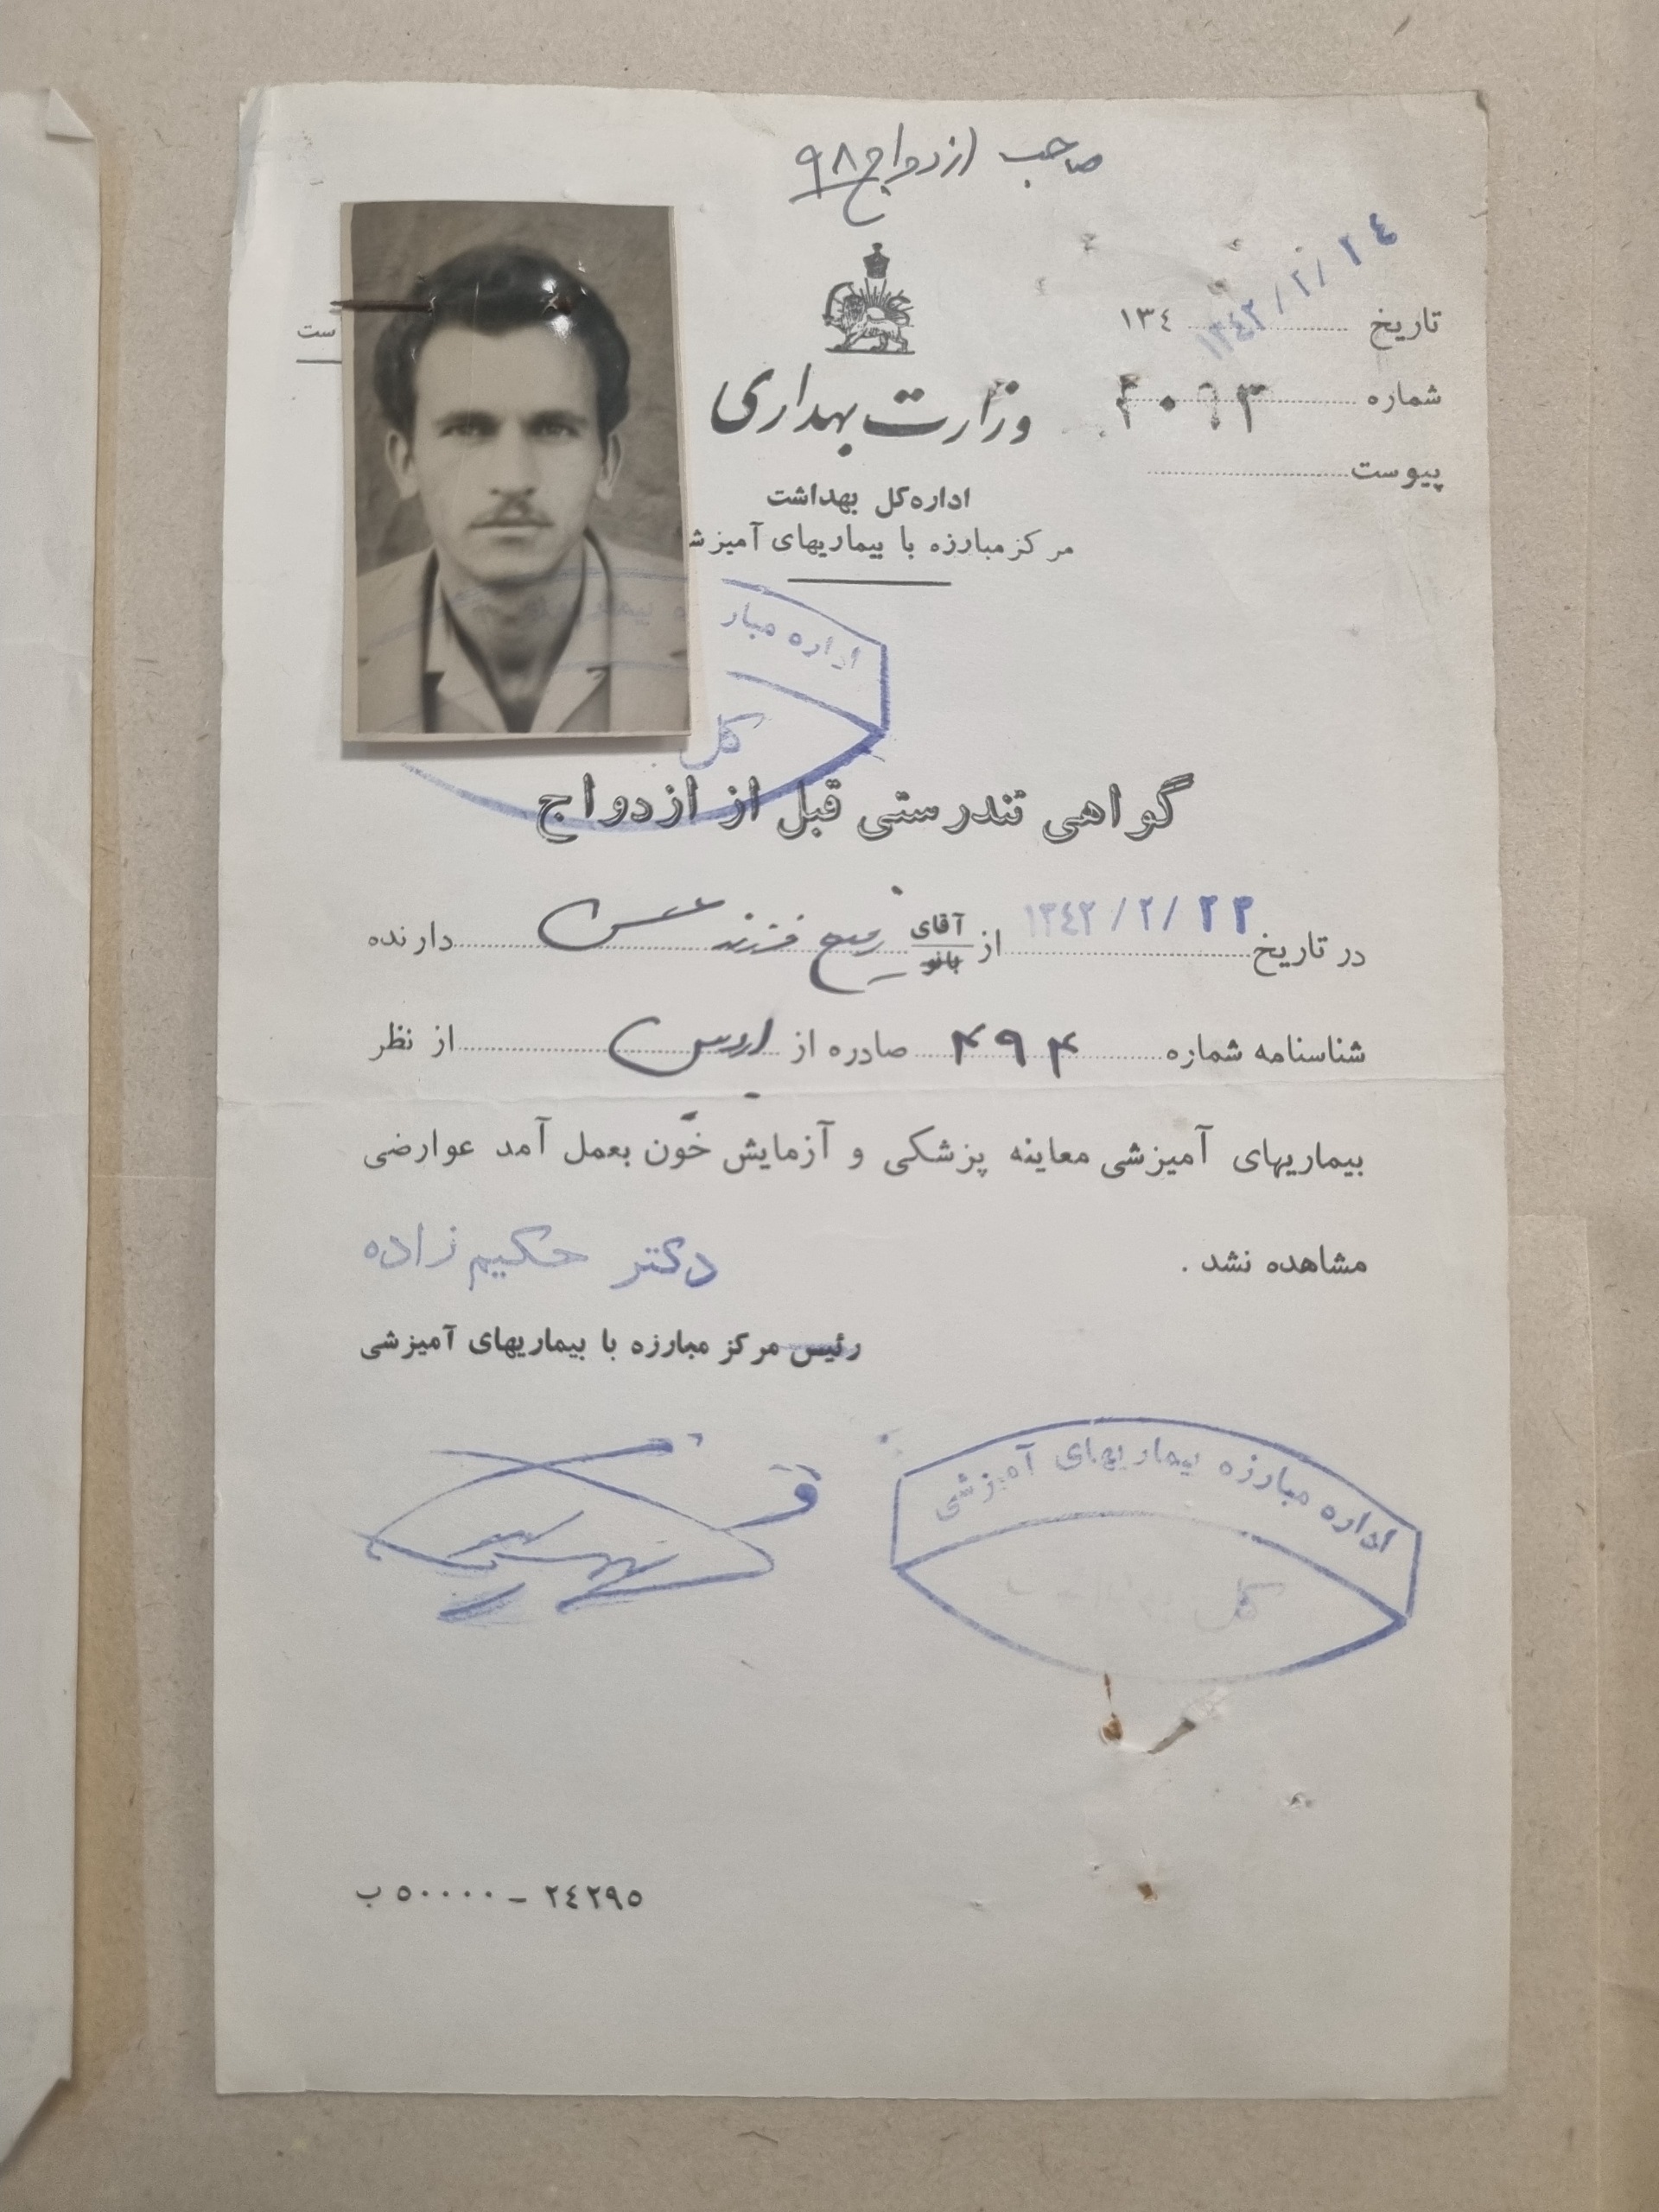 صاحب ازدواج ۹۸
تاریخ ۱۳٤
۱۳٤۲/۲/۲٤
شماره
پیوست
ست
وزارت بهداری
اداره کل بهداشت
مرکز مبارزه با بیماریهای آمیزش
اداره مبار
کل
گواهی تندرستی قبل از ازدواج
در تاریخ ۱۳٤۲/۲/۲۳ از آقای بانو فرزند دارنده
شناسنامه شماره ۴۹۴ صادره از از نظر
بیماریهای آمیزشی معاینه پزشکی و آزمایش خون بعمل آمد عوارضی
مشاهده نشد .
دکتر حکیم زاده
رئیس مرکز مبارزه با بیماریهای آمیزشی
اداره مبارزه بیماریهای آمیزشی
کل
۲٤۲۹٥ – ٥۰۰۰۰ ب